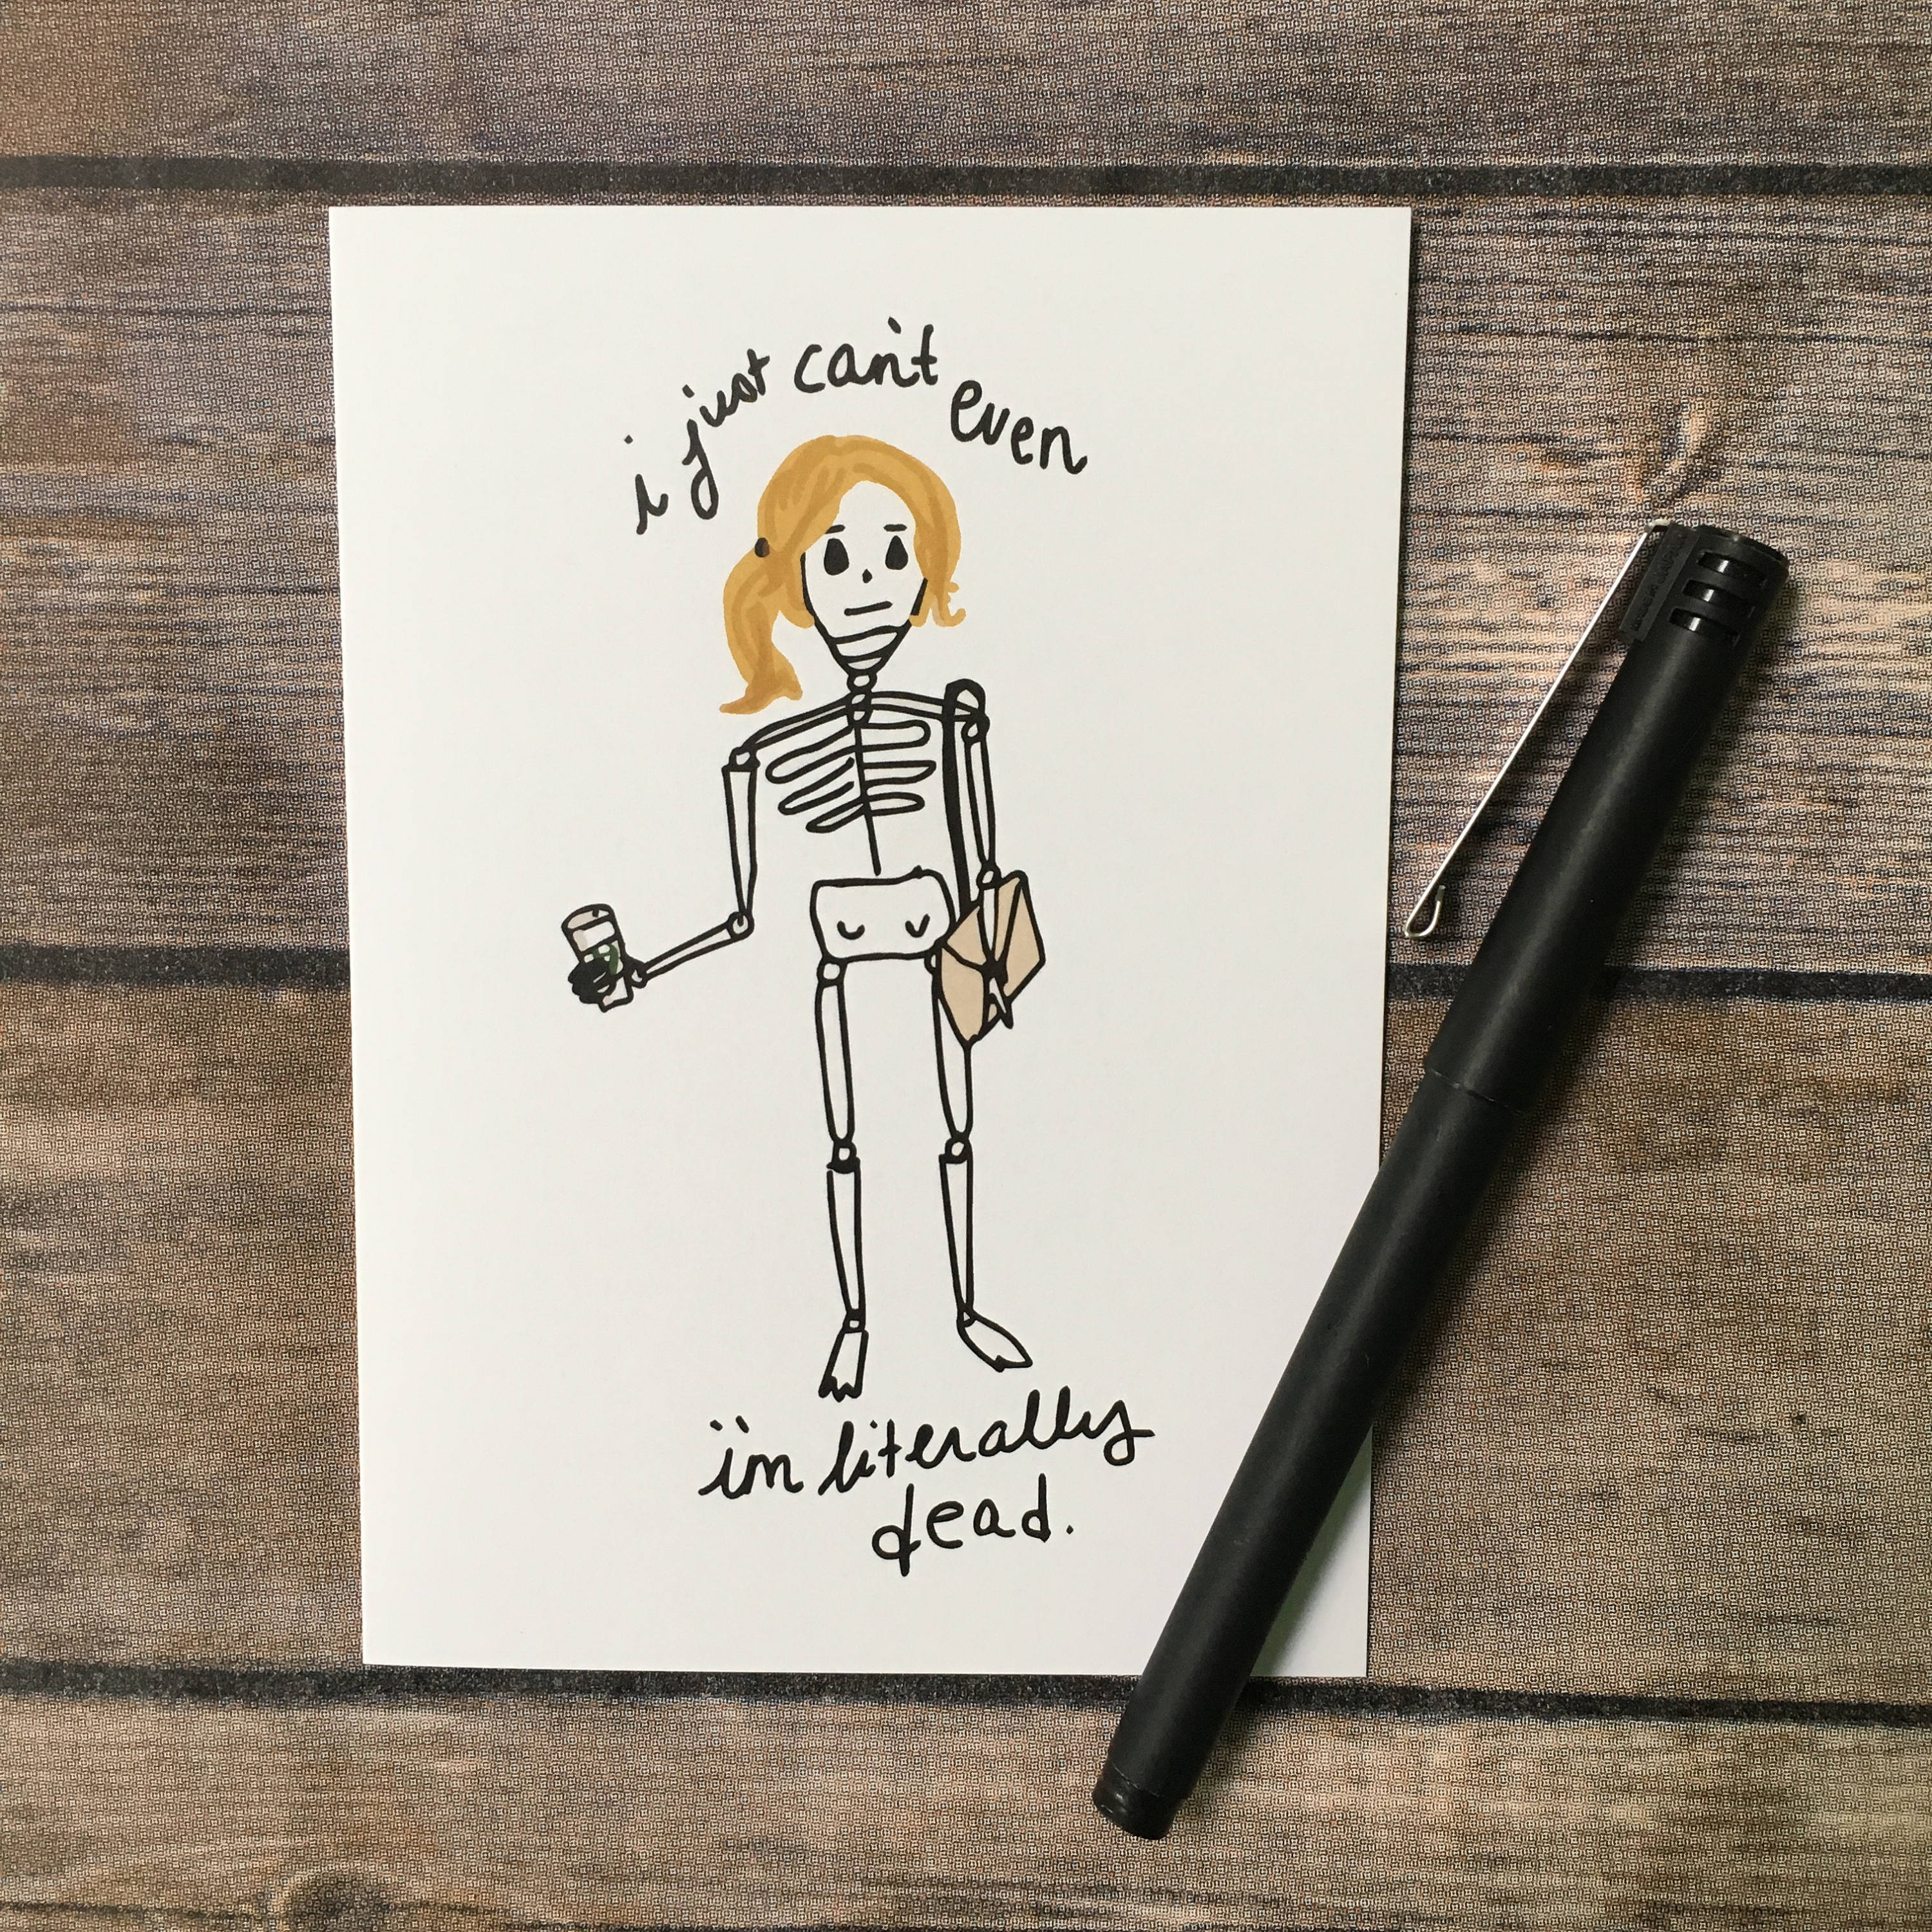 i just can't even
i'm literally
dead.